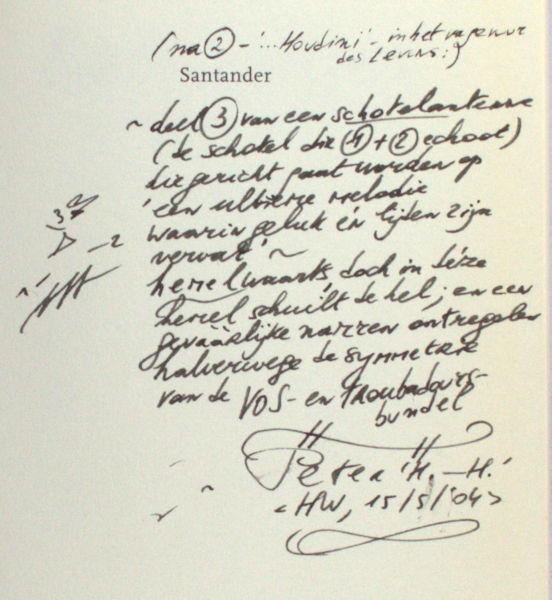 (na ② - '...Houdini' - in het vagevuur
des Levens:)
Santander
~ deel ③ van een schotelantenne
(de schotel die ① + ② echoot)
die gericht gaat worden op
'een ultieme melodie
waarin geluk én lijden zijn
vervat' ~
hemelwaarts, doch in déze
hemel schuilt de hel; en een
gevaarlijke narren ontregelen
halverwege de symmetrie
van de VOS- en Troubadours-
bundel
Peter 'H.-H.'
<HW, 15/5/'04>